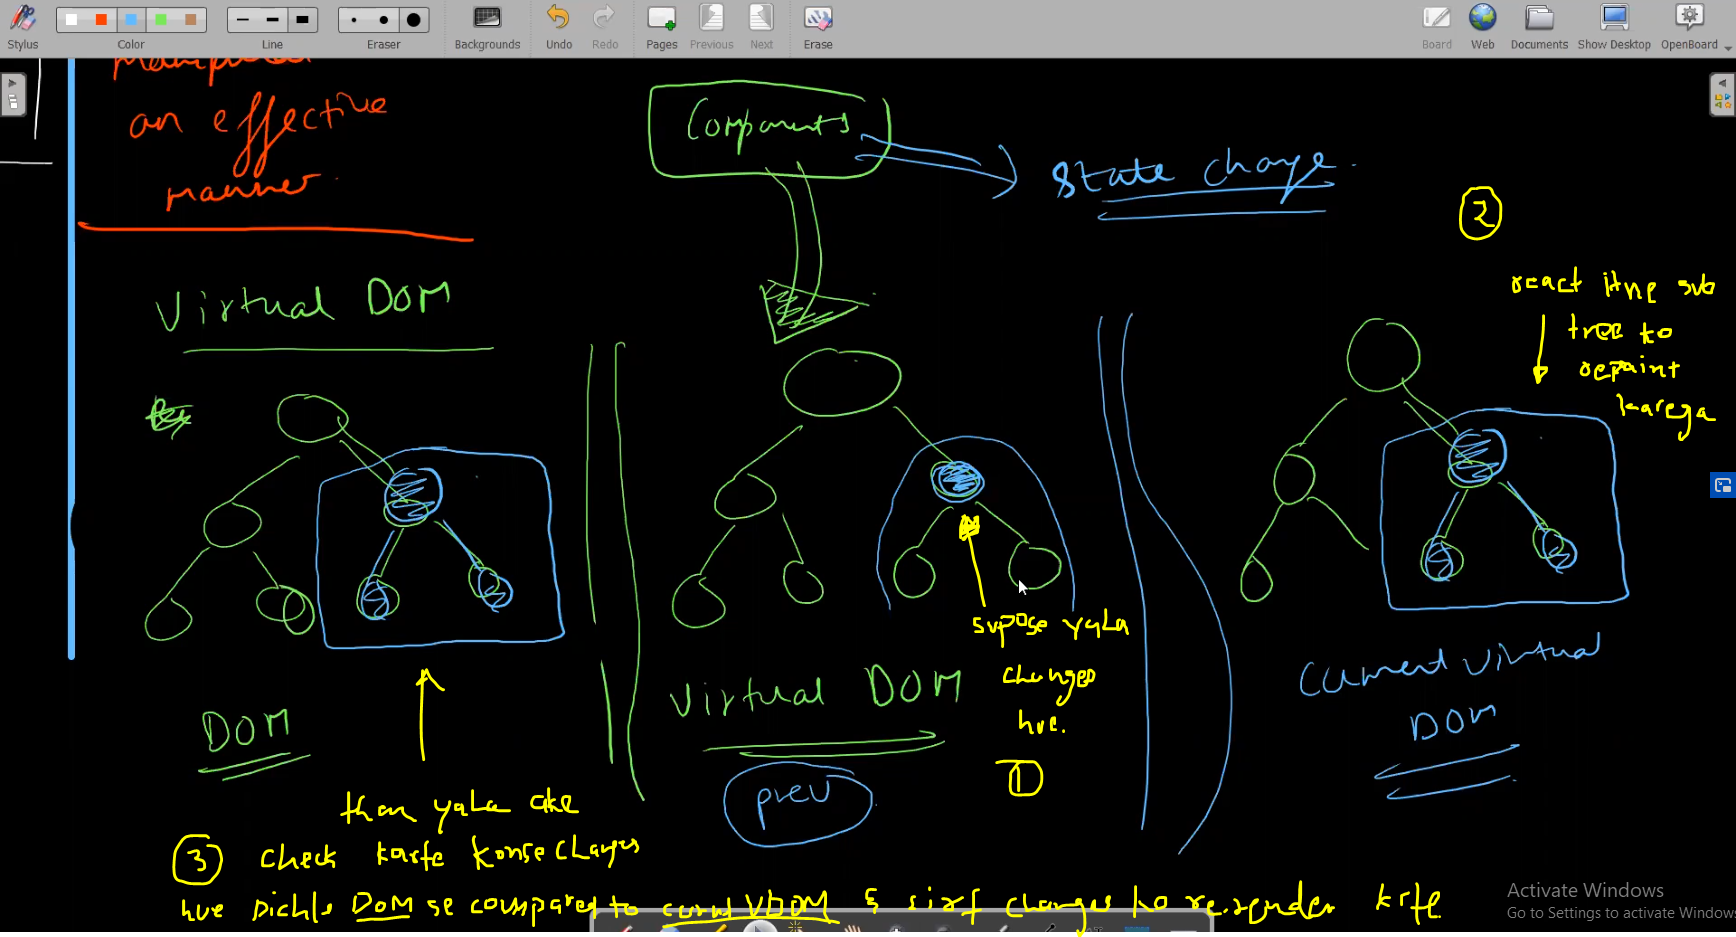 Stylus
Color
Line
Eraser
Backgrounds
Undo
Redo
Pages
Previous
Next
Erase
Board
Web
Documents
Show Desktop
OpenBoard
an effective
manner.
Components
State change.
2
react itne sub
tree ko
repaint
karega
Virtual DOM
supose yaha
changes
hue.
1
DOM
Virtual DOM
prev
Current Virtual
DOM
then yaha
3 check karke konse changes
hue pichle DOM se compared to VDOM & sirf changes ko re-render krke
Activate Windows
Go to Settings to activate Windows